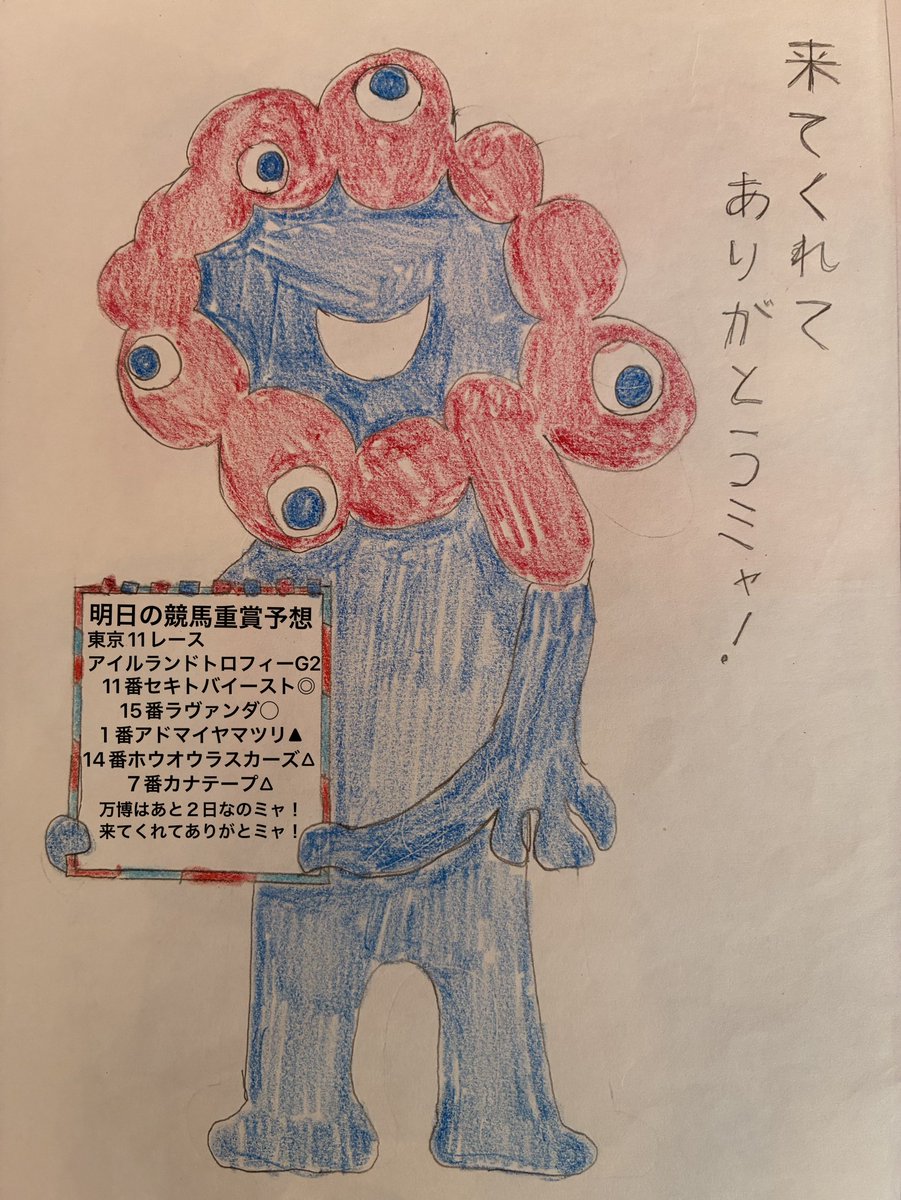 来てくれて
ありがとうミャ!
明日の競馬重賞予想
東京11レース
アイルランドトロフィーG2
11番セキトバイースト◎
15番ラヴァンダ○
1番アドマイヤマツリ▲
14番ホウオウラスカーズ△
7番カナテープ△
万博はあと2日なのミャ!
来てくれてありがとミャ!